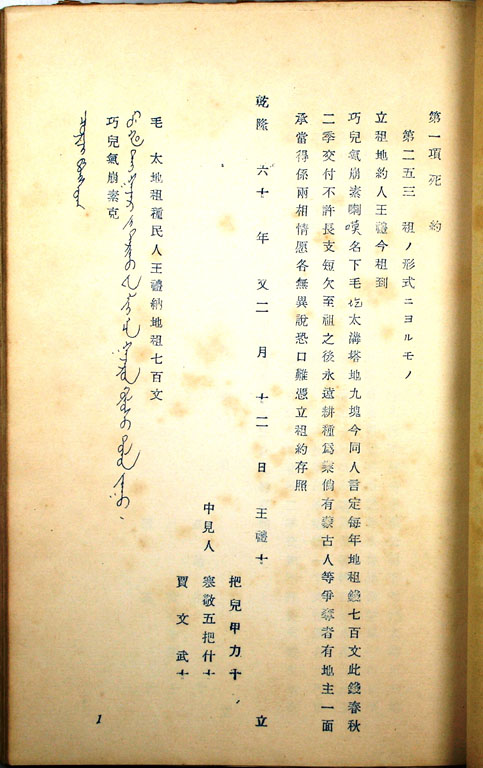 第一項 死約
第二五三 租ノ形式ニヨルモノ
立租地約人王禮今租到
巧兒氣崩素喇嘆名下毛圪太溝塔地九塊今同人言定每年地租錢七百文此錢春秋
二季交付不許長支短欠至租之後永遠耕種爲業倘有蒙古人等爭奪者有地主一面
承當得係兩相情愿各無異說恐口難憑立租約存照
乾隆六十年又二月十二日 王禮十 立
把兒甲力十
中見人 寨敬五把什十
賈文武十
毛 太地租種民人王禮納地租七百文
巧兒氣崩素克
1